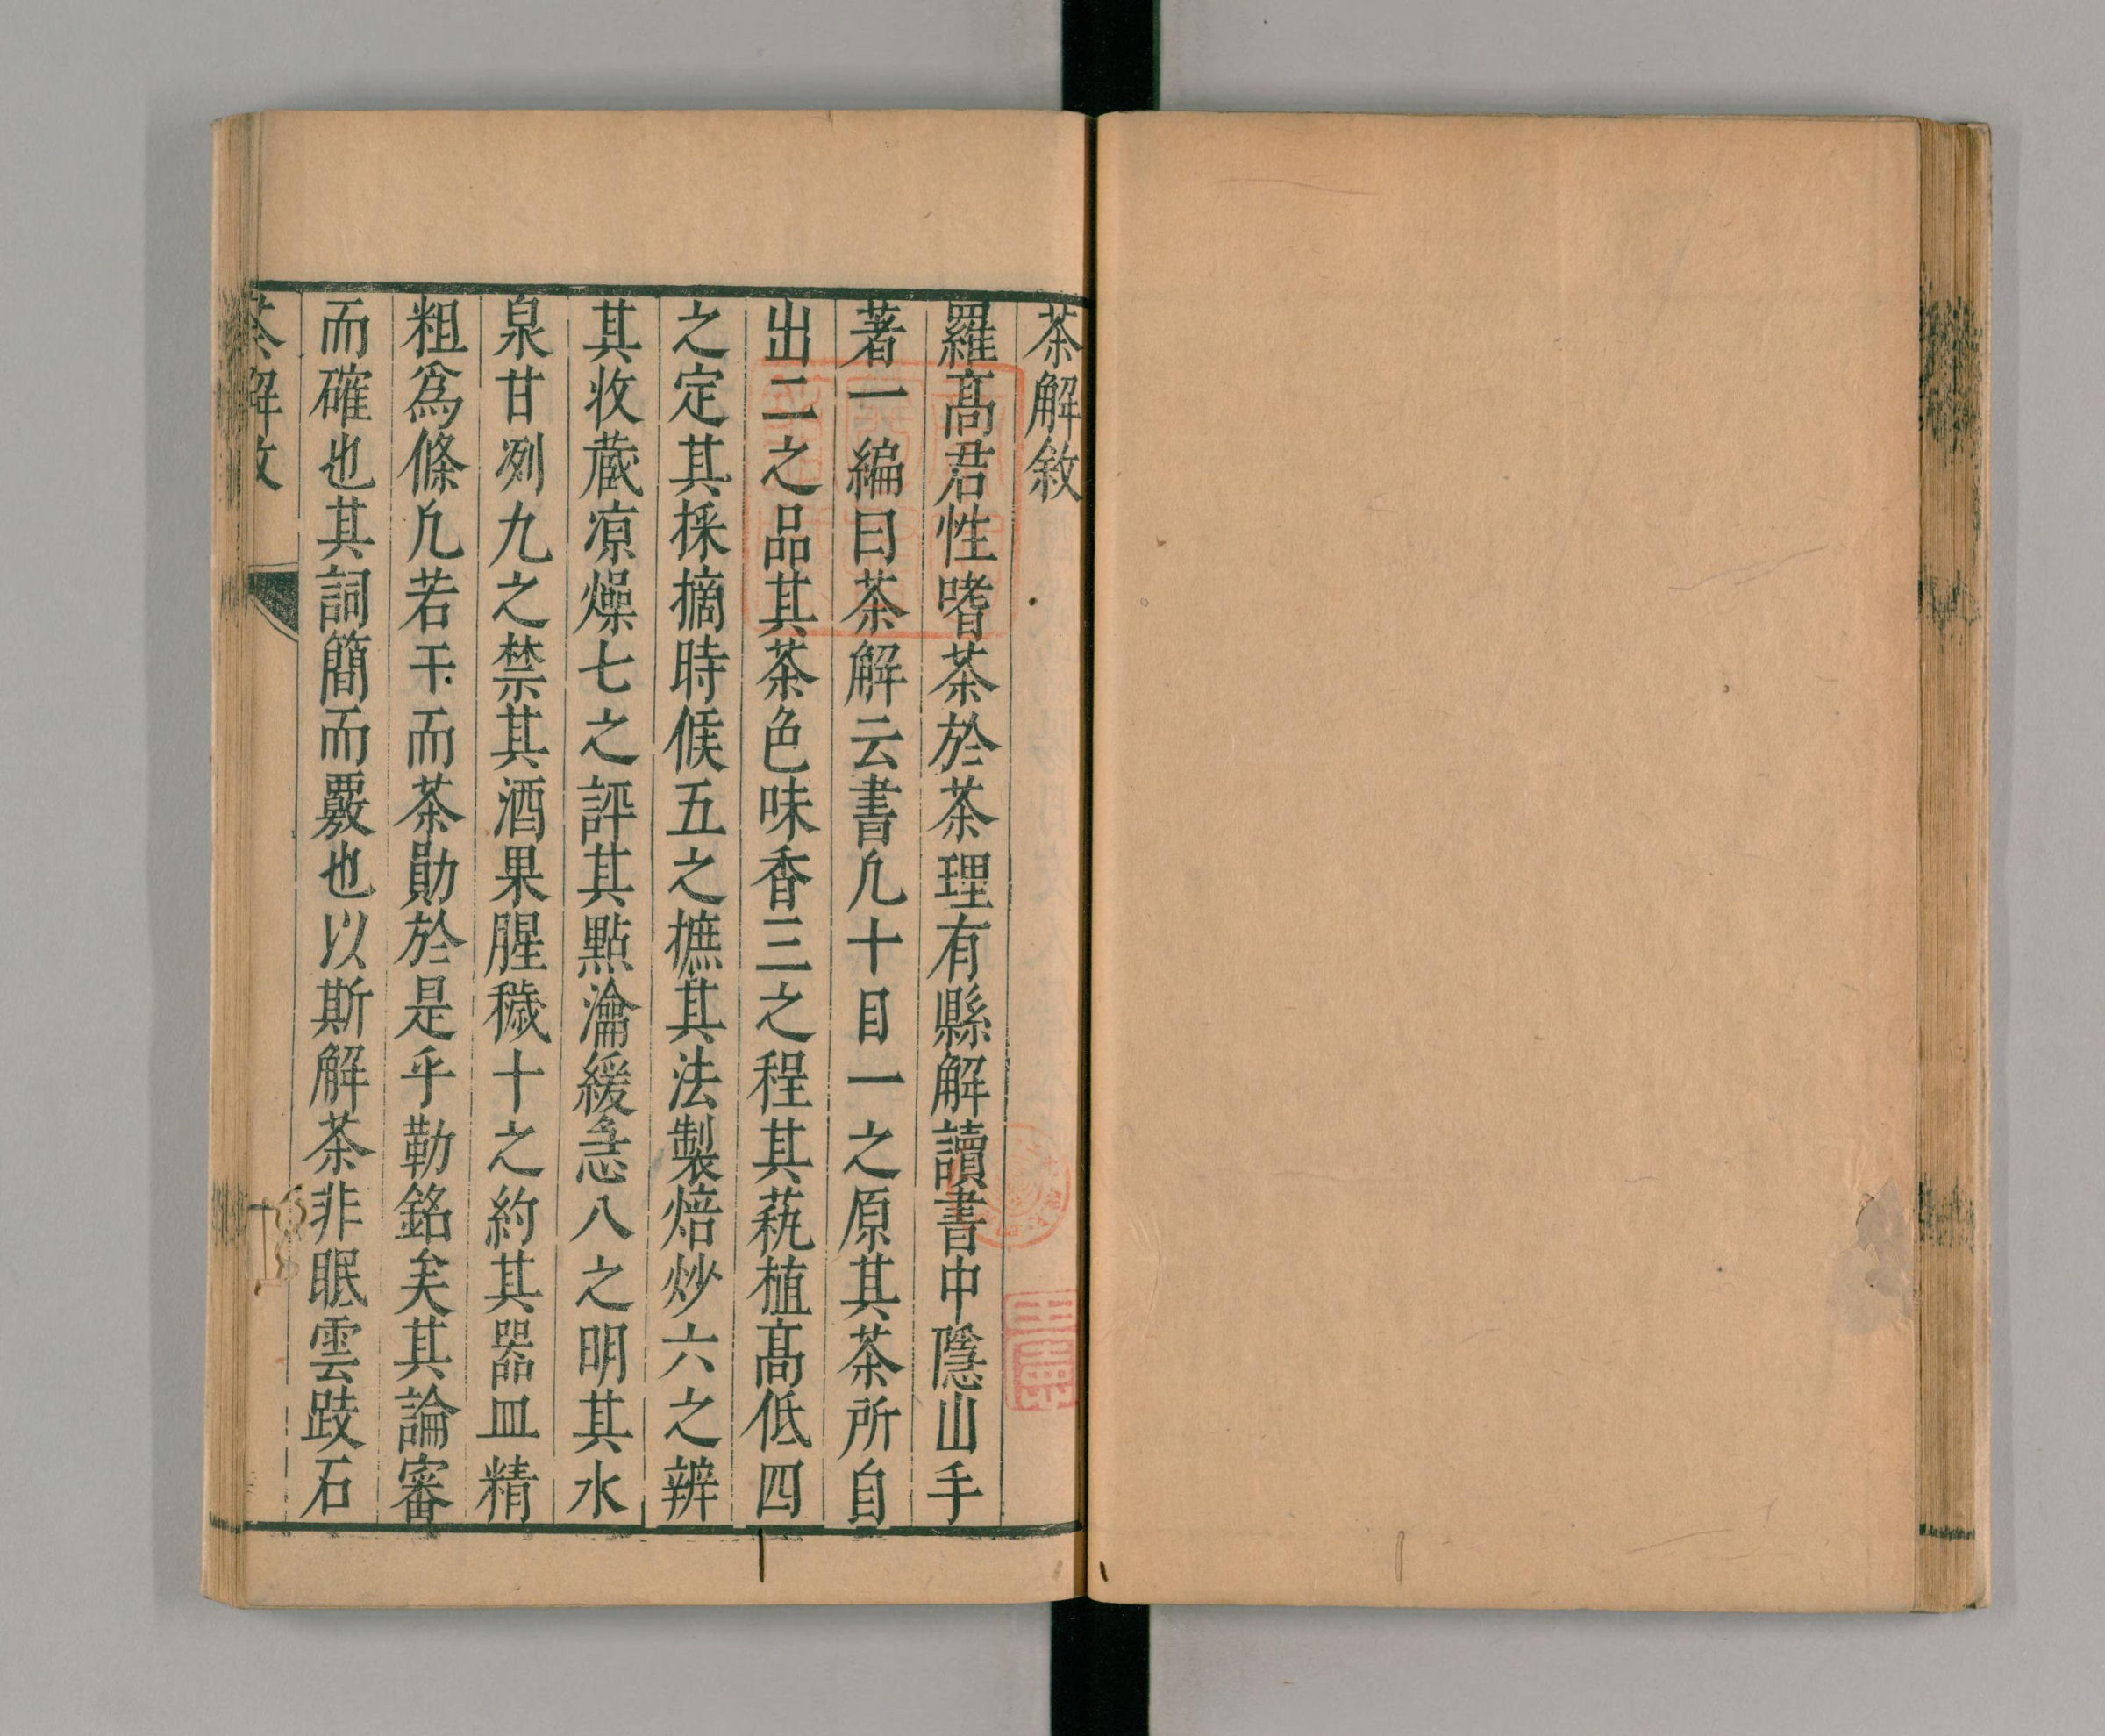 茶解敘
羅髙君性嗜茶於茶理有縣解讀書中隱山手
著一編曰茶解云書凢十目一之原其茶所自
出二之品其茶色味香三之程其蓺植髙低四
之定其採摘時候五之摭其法製焙炒六之辨
其收蔵凉燥七之評其點瀹緩急八之明其水
泉甘冽九之禁其酒果腥穢十之約其器皿精
粗爲條凢若干而茶勛於是乎勒銘矣其論審
而確也其詞簡而覈也以斯解茶非眠雲跂石
茶解敘